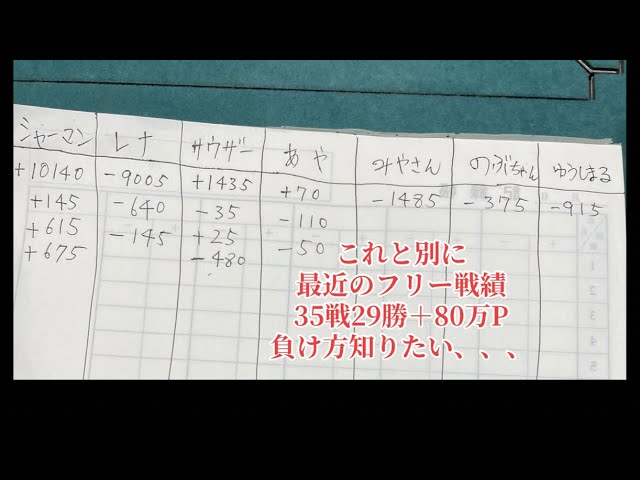 シャーマン レナ サウザー あや みやさん のぶちゃん ゆうしまる
+10140 -9005 +1435 +70 -1485 -375 -915
+145 -640 -35 -110
+615 -145 +25 -50
+675 -480
これと別に
最近のフリー戦績
35戦29勝＋80万P
負け方知りたい、、、
1
2
3
4
5